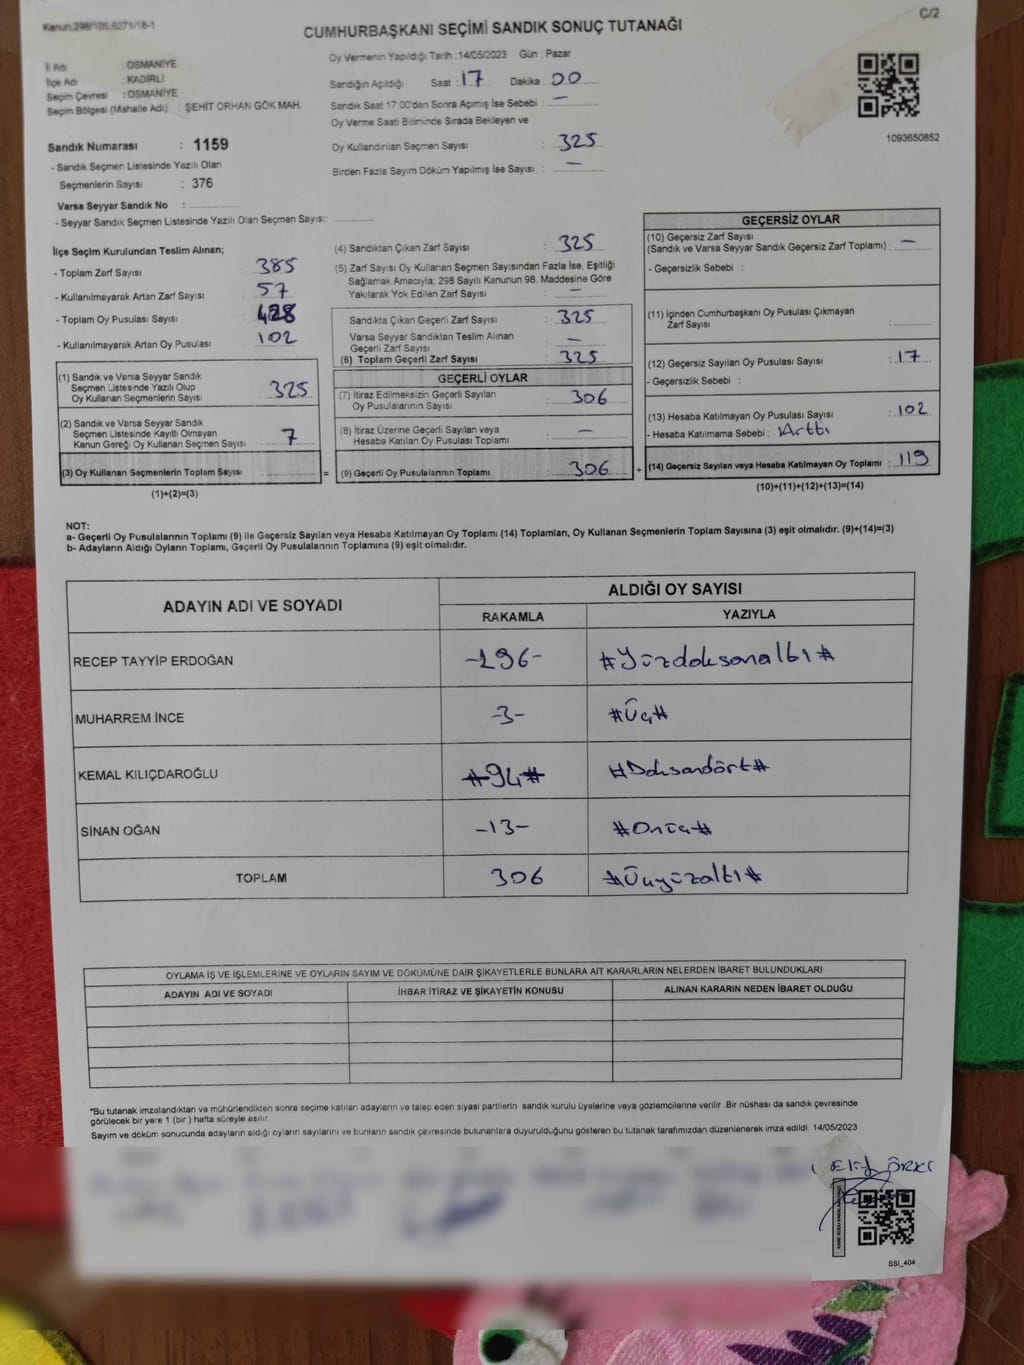 Kanun;298/105,6271/18-1
C/2
CUMHURBAŞKANI SEÇİMİ SANDIK SONUÇ TUTANAĞI
İl Adı : OSMANİYE
İlçe Adı : KADİRLİ
Seçim Çevresi : OSMANİYE
Seçim Bölgesi (Mahalle Adı) : ŞEHİT ORHAN GÖK MAH.
Sandık Numarası : 1159
- Sandık Seçmen Listesinde Yazılı Olan
Seçmenlerin Sayısı : 376
Varsa Seyyar Sandık No :
- Seyyar Sandık Seçmen Listesinde Yazılı Olan Seçmen Sayısı:
Oy Vermenin Yapıldığı Tarih :14/05/2023 Gün : Pazar
Sandığın Açıldığı Saat : 17 Dakika : 00
Sandık Saat 17 00'den Sonra Açımış İse Sebebi : —
Oy Verme Saati Bitiminde Sırada Bekleyen ve
Oy Kullandırılan Seçmen Sayısı : 325
Birden Fazla Sayım Döküm Yapılmış İse Sayısı : —
1093650852
İlçe Seçim Kurulundan Teslim Alınan;
- Toplam Zarf Sayısı : 385
- Kullanılmayarak Artan Zarf Sayısı : 57
- Toplam Oy Pusulası Sayısı : 428
- Kullanılmayarak Artan Oy Pusulası : 102
(1) Sandık ve Varsa Seyyar Sandık
Seçmen Listesinde Yazılı Olup
Oy Kullanan Seçmenlerin Sayısı : 325
(2) Sandık ve Varsa Seyyar Sandık
Seçmen Listesinde Kayıtlı Olmayan
Kanun Gereği Oy Kullanan Seçmen Sayısı : 7
(3) Oy Kullanan Seçmenlerin Toplam Sayısı :
(1)+(2)=(3)
(4) Sandıktan Çıkan Zarf Sayısı : 325
(5) Zarf Sayısı Oy Kullanan Seçmen Sayısından Fazla İse, Eşitliği
Sağlamak Amacıyla; 298 Sayılı Kanunun 98. Maddesine Göre
Yakılarak Yok Edilen Zarf Sayısı : —
Sandıkta Çıkan Geçerli Zarf Sayısı : 325
Varsa Seyyar Sandıktan Teslim Alınan
Geçerli Zarf Sayısı : —
(6) Toplam Geçerli Zarf Sayısı : 325
GEÇERLİ OYLAR
(7) İtiraz Edilmeksizin Geçerli Sayılan
Oy Pusulalarının Sayısı : 306
(8) İtiraz Üzerine Geçerli Sayılan veya
Hesaba Katılan Oy Pusulası Toplamı : —
= (9) Geçerli Oy Pusulalarının Toplamı : 306
GEÇERSİZ OYLAR
(10) Geçersiz Zarf Sayısı
(Sandık ve Varsa Seyyar Sandık Geçersiz Zarf Toplamı) : —
- Geçersizlik Sebebi :
(11) İçinden Cumhurbaşkanı Oy Pusulası Çıkmayan
Zarf Sayısı :
(12) Geçersiz Sayılan Oy Pusulası Sayısı : 17
- Geçersizlik Sebebi :
(13) Hesaba Katılmayan Oy Pusulası Sayısı : 102
- Hesaba Katılmama Sebebi : Arttı
+ (14) Geçersiz Sayılan veya Hesaba Katılmayan Oy Toplamı : 119
(10)+(11)+(12)+(13)=(14)
NOT:
a- Geçerli Oy Pusulalarının Toplamı (9) ile Geçersiz Sayılan veya Hesaba Katılmayan Oy Toplamı (14) Toplamları, Oy Kullanan Seçmenlerin Toplam Sayısına (3) eşit olmalıdır. (9)+(14)=(3)
b- Adayların Aldığı Oyların Toplamı, Geçerli Oy Pusulalarının Toplamına (9) eşit olmalıdır.
ADAYIN ADI VE SOYADI
ALDIĞI OY SAYISI
RAKAMLA YAZIYLA
RECEP TAYYİP ERDOĞAN -196- #Yüzdoksanaltı#
MUHARREM İNCE -3- #Üç#
KEMAL KILIÇDAROĞLU #94# #Doksandört#
SİNAN OĞAN -13- #Onüç#
TOPLAM 306 #Üçyüzaltı#
OYLAMA İŞ VE İŞLEMLERİNE VE OYLARIN SAYIM VE DÖKÜMÜNE DAİR ŞİKAYETLERLE BUNLARA AİT KARARLARIN NELERDEN İBARET BULUNDUKLARI
ADAYIN ADI VE SOYADI İHBAR İTİRAZ VE ŞİKAYETİN KONUSU ALINAN KARARIN NEDEN İBARET OLDUĞU
*Bu tutanak imzalandıktan ve mühürlendikten sonra seçime katılan adayların ve talep eden siyasi partilerin sandık kurulu üyelerine veya gözlemcilerine verilir .Bir nüshası da sandık çevresinde
görülecek bir yere 1 (bir ) hafta süreyle asılır.
Sayım ve döküm sonucunda adayların aldığı oyların sayılarını ve bunların sandık çevresinde bulunanlara duyurulduğunu gösteren bu tutanak tarafımızdan düzenlenerek imza edildi. 14/05/2023
Elif
SSI_404